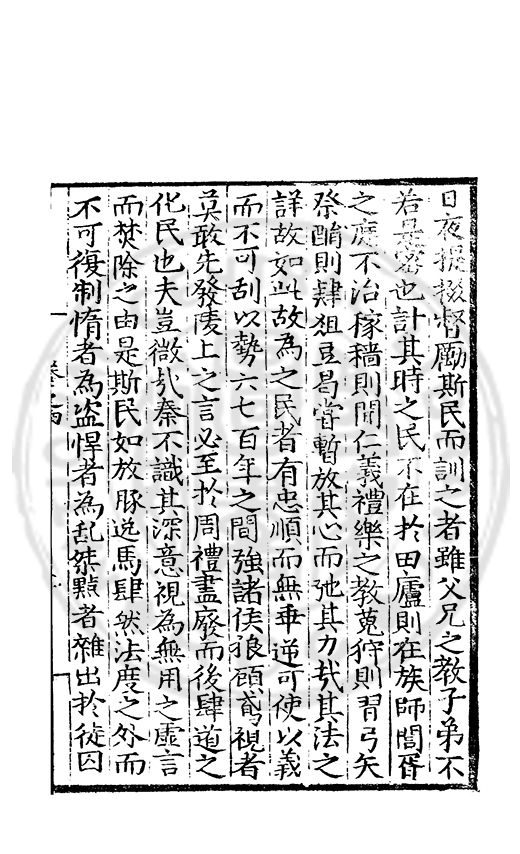 日夜提掇督勵斯民而訓之者雖父兄之教子弟不
若是密也計其時之民不在扵田廬則在族師閭胥
之庭不治稼穡則閒仁義禮樂之教蒐狩則習弓矢
祭酺則肄俎豆曷甞暫放其心而弛其力㢤其法之
詳故如此故為之民者有忠順而無乖逆可使以義
而不可刮以勢六七百年之間強諸侯狼顧鳶視者
莫敢先發陵上之言必至扵周禮盡廢而後肆道之
化民也夫豈微㢤秦不識其深意視為無用之虛言
而焚除之由是斯民如放豚逸馬肆然法度之外而
不可復制惰者為盗悍者為乱桀黠者雜出扵徒囚